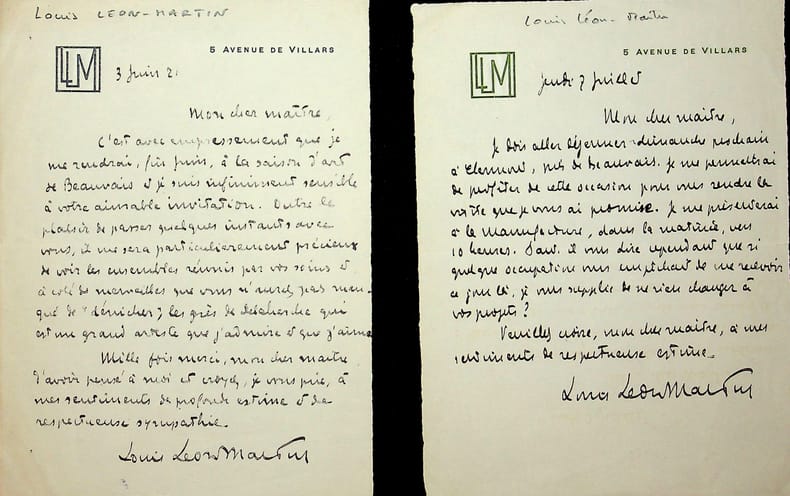 Louis LEON-MARTIN
5 AVENUE DE VILLARS
LLM
3 Juin 2
Mon cher maître,
C'est avec empressement que je
me rendrai, fin juin, à la saison d'art
de Beauvais et je suis infiniment sensible
à votre aimable invitation. Outre le
plaisir de passer quelques instants avec
vous, il me sera particulièrement précieux
de voir les ensembles réunis par vos soins et
à côté de merveilles que vous n'aurez pas man-
qué de "dénicher", les grès de Delaherche qui
est un grand artiste que j'admire et que j'aime.
Mille fois merci, mon cher maître
d'avoir pensé à moi et croyez, je vous prie, à
mes sentiments de profonde estime et de
respectueuse sympathie.
Louis Léon Martin
Louis Léon-
5 AVENUE DE VILLARS
LLM
Jeudi 7 Juillet
Mon cher maître,
Je dois aller déjeuner dimanche prochain
à Clermont, près de Beauvais. Je me permettrai
de profiter de cette occasion pour vous rendre la
visite que je vous ai promise. Je me présenterai
à la manufacture, dans la matinée, vers
10 heures. Dois-il vous dire cependant que si
quelque occupation vous empêchait de me recevoir
ce jour là, je vous supplie de ne rien changer à
vos projets?
Veuillez croire, mon cher maître, à mes
sentiments de respectueuse estime.
Louis Léon Martin